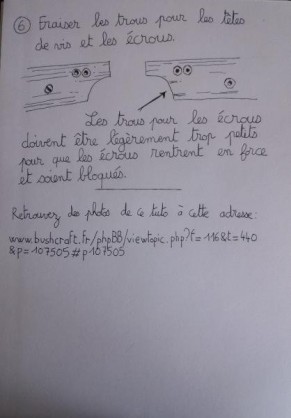 ⑥ Fraiser les trous pour les têtes
de vis et les écrous.
Les trous pour les écrous
doivent être légèrement trop petits
pour que les écrous rentrent en force
et soient bloqués.
Retrouvez des photos de ce tuto à cette adresse:
www.bushcraft.fr/phpBB/viewtopic.php?f=116&t=440
&p=107505#p107505